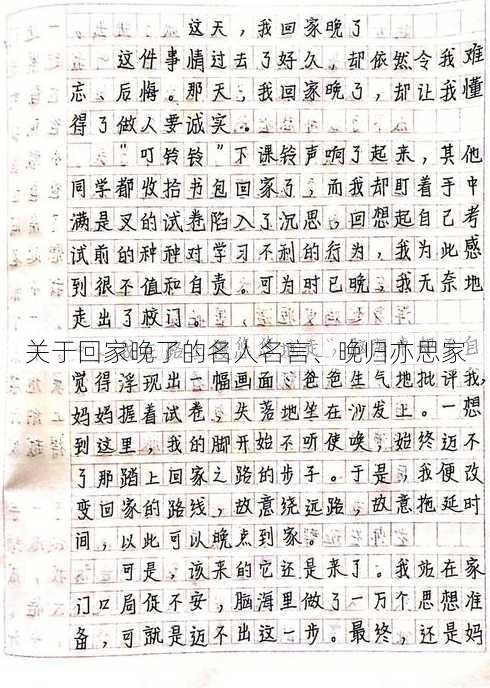 这天，我回家晚了
这件事情过去了好久，却依然令我难
忘、后悔。那天，我回家晚了，却让我懂
得了做人要诚实。
“叮铃铃”下课铃声响了起来，其他
同学都收拾书包回家了，而我却盯着手中
满是叉的试卷陷入了沉思，回想起自己考
试前的种种对学习不利的行为，我为此感
到很不值和自责。可为时已晚，我无奈地
走出了校门。
关于回家晚了的名人名言、晚归亦思家
自
觉得浮现出一幅画面：爸爸生气地批评我，
妈妈握着试卷，失落地坐在沙发上。一想
到这里，我的脚开始不听使唤，始终迈不
了那踏上回家之路的步子。于是，我便改
变回家的路线，故意绕远路，故意拖延时
间，以此可以晚点到家。
可是，该来的它还是来了。我站在家
门口局促不安，脑海里做了一万个思想准
备，可就是迈不出这一步。最终，还是妈